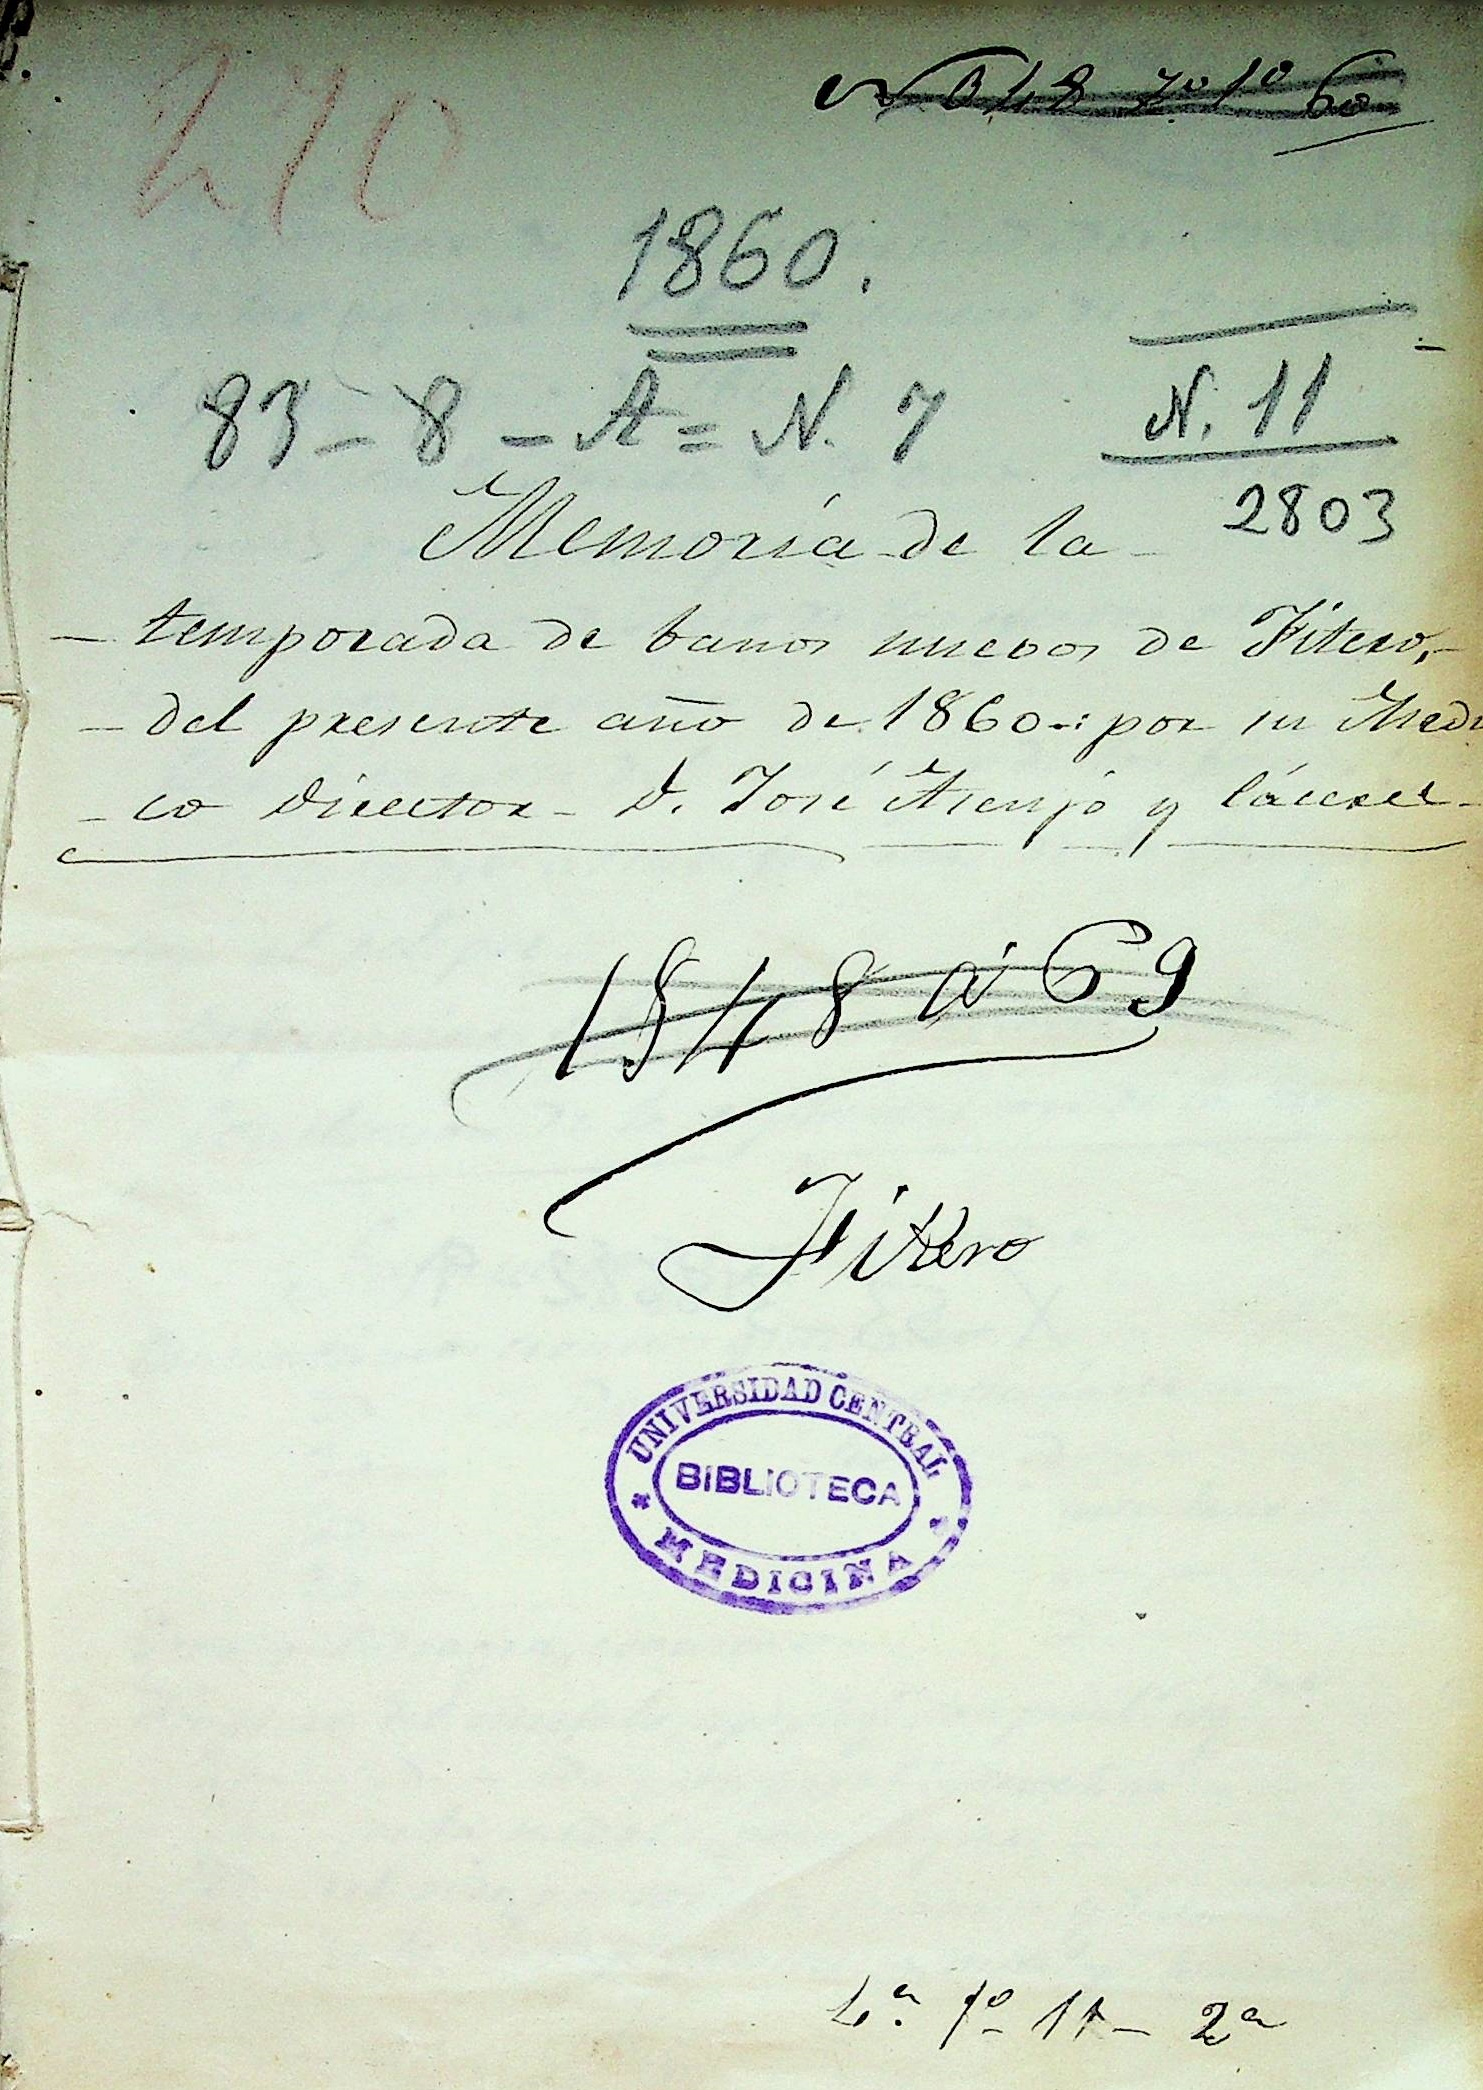 270
1860.
83-8-A=N. 7
N. 11
2803
Memoria de la
temporada de banos nuevos de Fitero,
del presente año de 1860: por su Medi
co Director D. José Asenjo y Cáceres
1848 á 69
Fitero
UNIVERSIDAD CENTRAL
BIBLIOTECA
MEDICINA